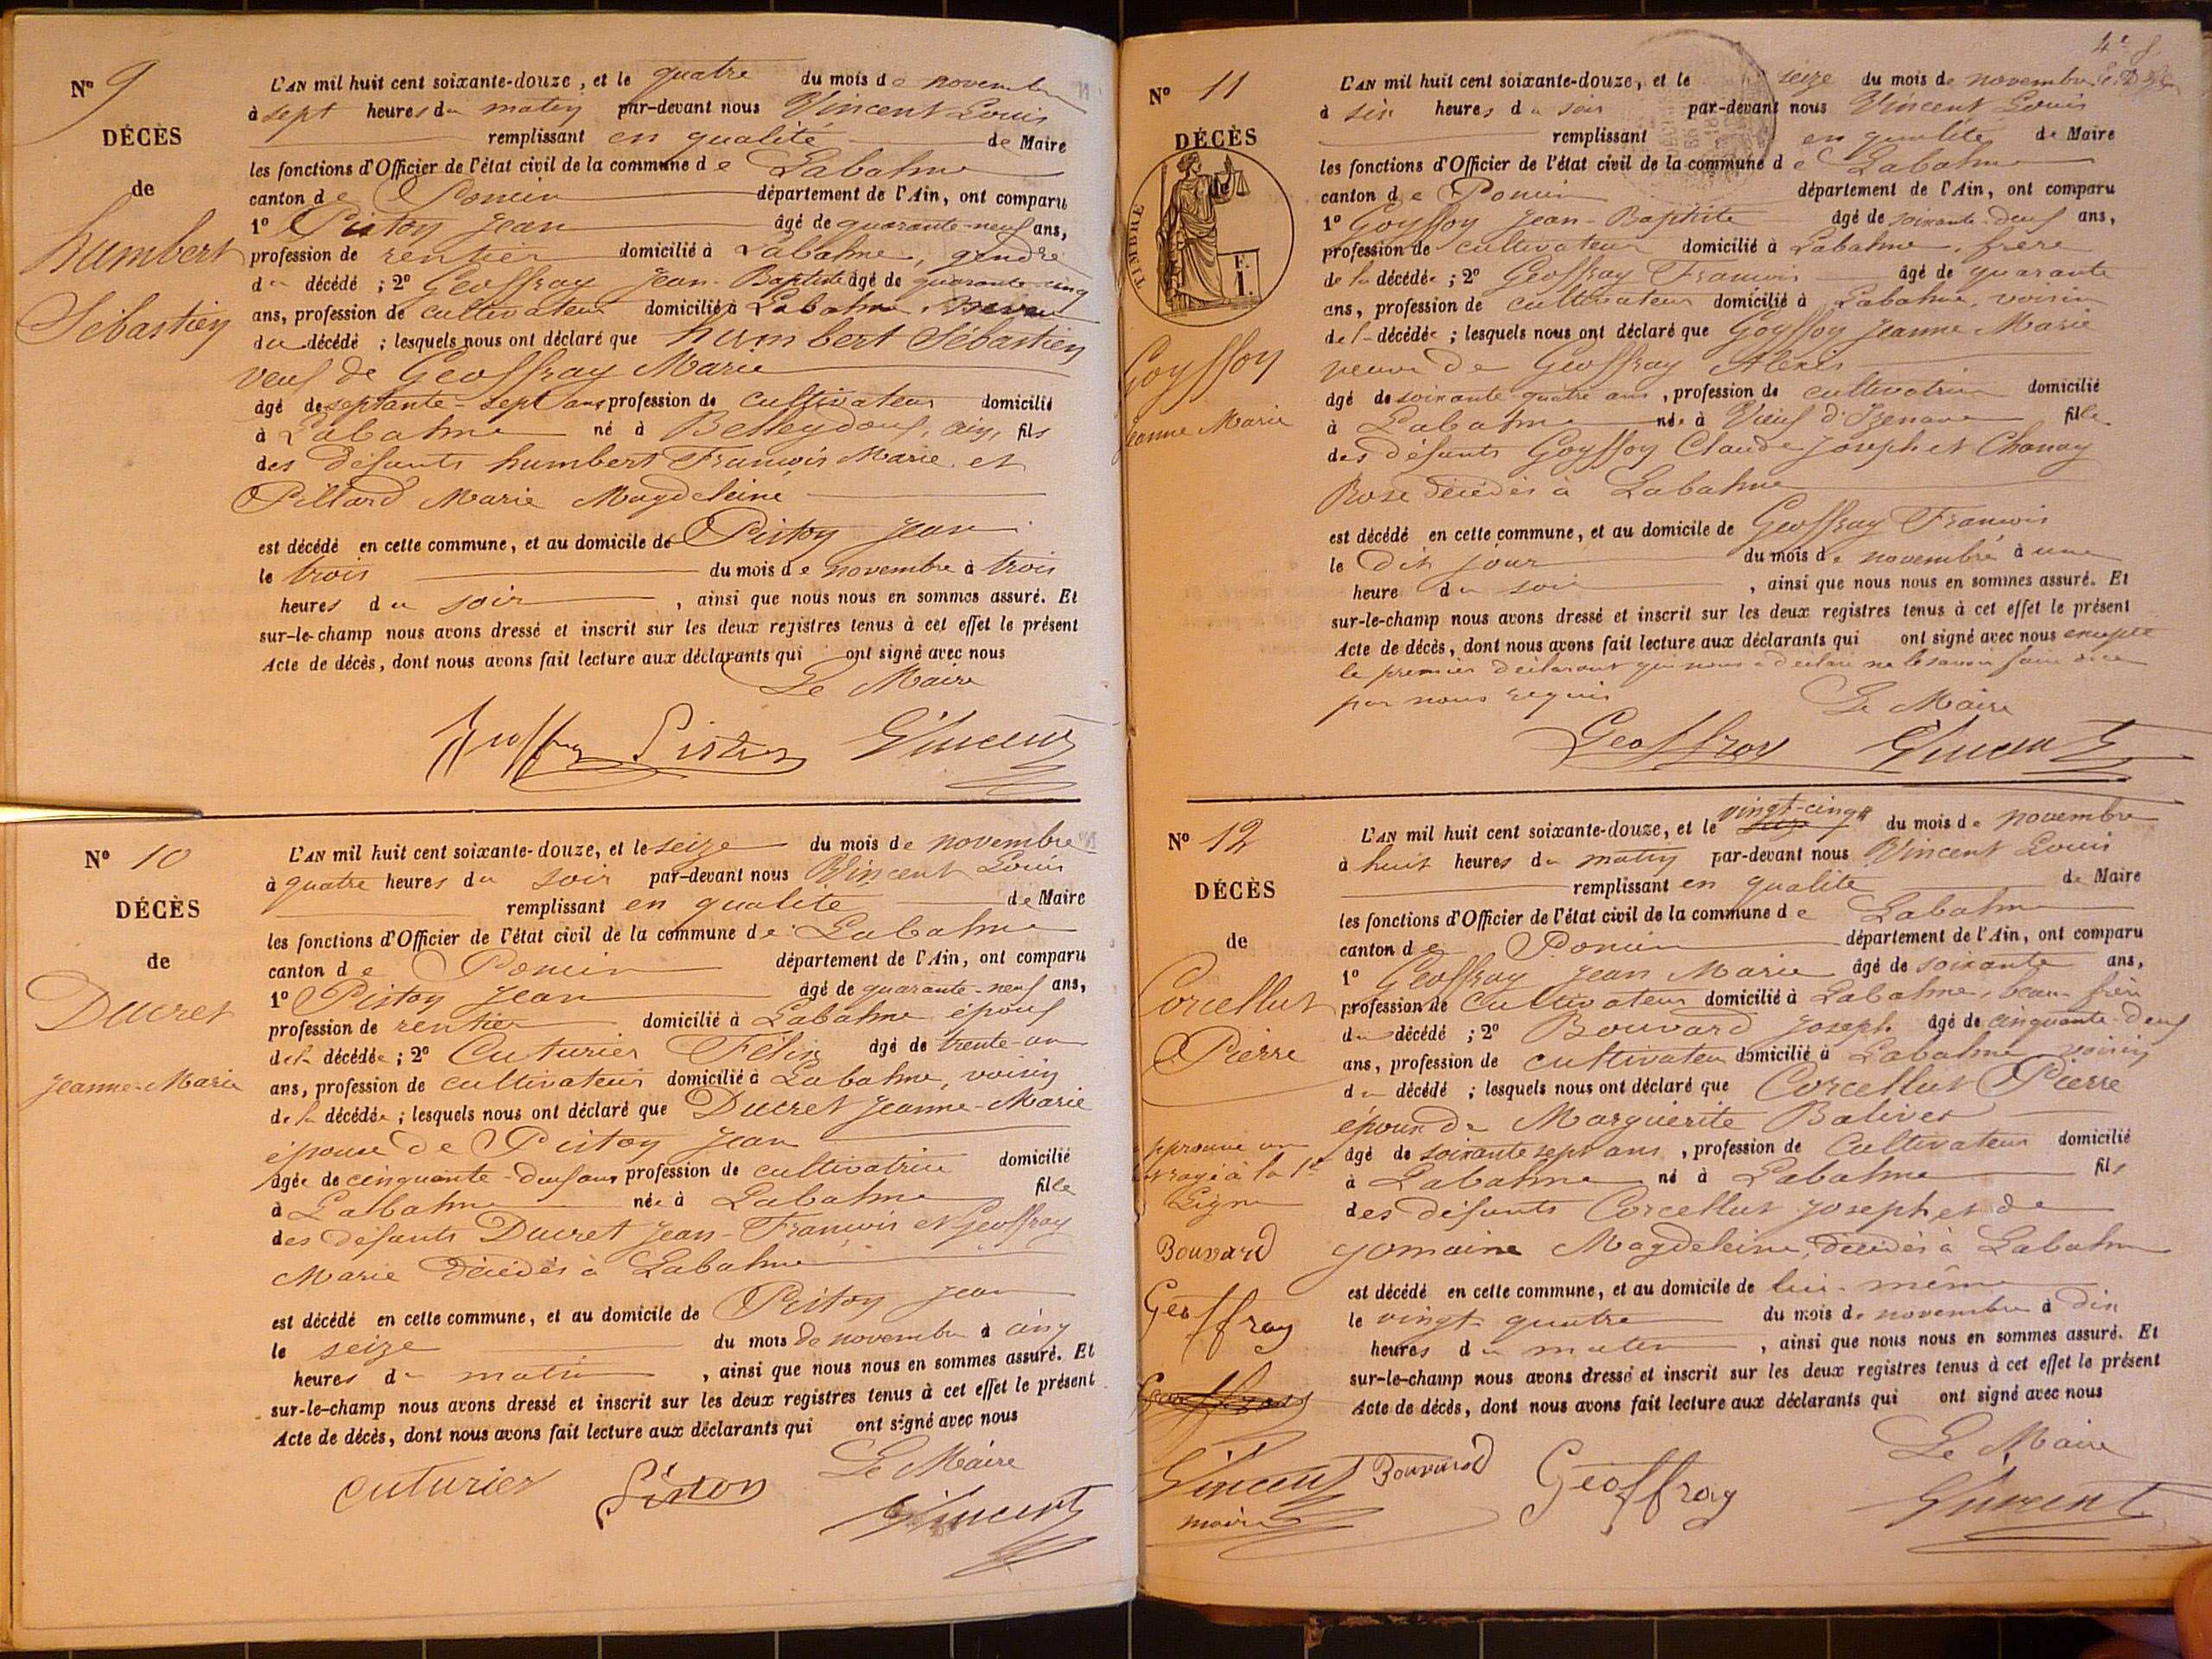 N° 9
DÉCÈS
de
humbert
Sébastien
L'AN mil huit cent soixante-douze, et le quatre du mois de novembre
à sept heures du matin par-devant nous Vincent Louis
remplissant en qualité de Maire
les fonctions d'Officier de l'état civil de la commune de Labalme
canton de Poncin département de l'Ain, ont comparu
1° Piston Jean âgé de quarante-neuf ans,
profession de rentier domicilié à Labalme, gendre
du décédé ; 2° Geoffray Jean-Baptiste âgé de quarante-cinq
ans, profession de cultivateur domicilié à Labalme, neveu
du décédé ; lesquels nous ont déclaré que humbert Sébastien
veuf de Geoffray Marie
âgé de septante-sept ans profession de cultivateur domicilié
à Labalme né à Belleydoux, ain, fils
des défunts humbert François Marie et
Pillard Marie Magdeleine
est décédé en cette commune, et au domicile de Piston Jean
le trois du mois de novembre à trois
heures du soir, ainsi que nous nous en sommes assuré. Et
sur-le-champ nous avons dressé et inscrit sur les deux registres tenus à cet effet le présent
Acte de décès, dont nous avons fait lecture aux déclarants qui ont signé avec nous
Le Maire
Geoffray Piston Vincent
N° 10
DÉCÈS
de
Ducret
Jeanne-Marie
L'AN mil huit cent soixante-douze, et le seize du mois de novembre
à quatre heures du soir par-devant nous Vincent Louis
remplissant en qualité de Maire
les fonctions d'Officier de l'état civil de la commune de Labalme
canton de Poncin département de l'Ain, ont comparu
1° Piston Jean âgé de quarante-neuf ans,
profession de rentier domicilié à Labalme époux
de la décédée ; 2° Cuturier Félix âgé de trente-un
ans, profession de cultivateur domicilié à Labalme, voisin
de la décédée ; lesquels nous ont déclaré que Ducret Jeanne-Marie
épouse de Piston Jean
âgée de cinquante-deux ans profession de cultivatrice domicilié
à Labalme née à Labalme fille
des défunts Ducret Jean-François et Geoffray
Marie décédés à Labalme
est décédé en cette commune, et au domicile de Piston Jean
le seize du mois de novembre à cinq
heures du matin, ainsi que nous nous en sommes assuré. Et
sur-le-champ nous avons dressé et inscrit sur les deux registres tenus à cet effet le présent
Acte de décès, dont nous avons fait lecture aux déclarants qui ont signé avec nous
Le Maire
cuturier Piston Vincent
N° 11
DÉCÈS
TIMBRE
Goyffon
Jeanne Marie
L'AN mil huit cent soixante-douze, et le seize du mois de novembre
à six heures du soir par-devant nous Vincent Louis
remplissant en qualité de Maire
les fonctions d'Officier de l'état civil de la commune de Labalme
canton de Poncin département de l'Ain, ont comparu
1° Goyffon Jean-Baptiste âgé de soixante-deux ans,
profession de cultivateur domicilié à Labalme, frère
de la décédée ; 2° Geoffray François âgé de quarante
ans, profession de cultivateur domicilié à Labalme, voisin
de la décédée ; lesquels nous ont déclaré que Goyffon Jeanne Marie
veuve de Geoffray Alexis
âgé de soixante quatre ans, profession de cultivatrice domicilié
à Labalme née à Vieux d'Izenave fille
des défunts Goyffon Claude Joseph et Chanay
Rose décédés à Labalme
est décédé en cette commune, et au domicile de Geoffray François
le dit jour du mois de novembre à une
heure du soir, ainsi que nous nous en sommes assuré. Et
sur-le-champ nous avons dressé et inscrit sur les deux registres tenus à cet effet le présent
Acte de décès, dont nous avons fait lecture aux déclarants qui ont signé avec nous excepté
le premier déclarant qui nous a déclaré ne le savoir faire de ce
par nous requis
Le Maire
Geoffray Vincent
N° 12
DÉCÈS
de
Corcellut
Pierre
L'AN mil huit cent soixante-douze, et le vingt-cinq du mois de novembre
à huit heures du matin par-devant nous Vincent Louis
remplissant en qualité de Maire
les fonctions d'Officier de l'état civil de la commune de Labalme
canton de Poncin département de l'Ain, ont comparu
1° Geoffray Jean Marie âgé de soixante ans,
profession de cultivateur domicilié à Labalme, beau-frère
du décédé ; 2° Bouvard Joseph âgé de cinquante-deux
ans, profession de cultivateur domicilié à Labalme voisin
du décédé ; lesquels nous ont déclaré que Corcellut Pierre
époux de Marguerite Balivet
âgé de soixante sept ans, profession de Cultivateur domicilié
à Labalme né à Labalme fils
des défunts Corcellut Joseph et de
gomaine Magdeleine, décédés à Labalme
est décédé en cette commune, et au domicile de lui-même
le vingt quatre du mois de novembre à dix
heures du matin, ainsi que nous nous en sommes assuré. Et
sur-le-champ nous avons dressé et inscrit sur les deux registres tenus à cet effet le présent
Acte de décès, dont nous avons fait lecture aux déclarants qui ont signé avec nous
Le Maire
Bouvard Geoffray Vincent
pprouvé un
rayé à la 1re
Ligne
Bouvard
Geoffray
Vincent
maire